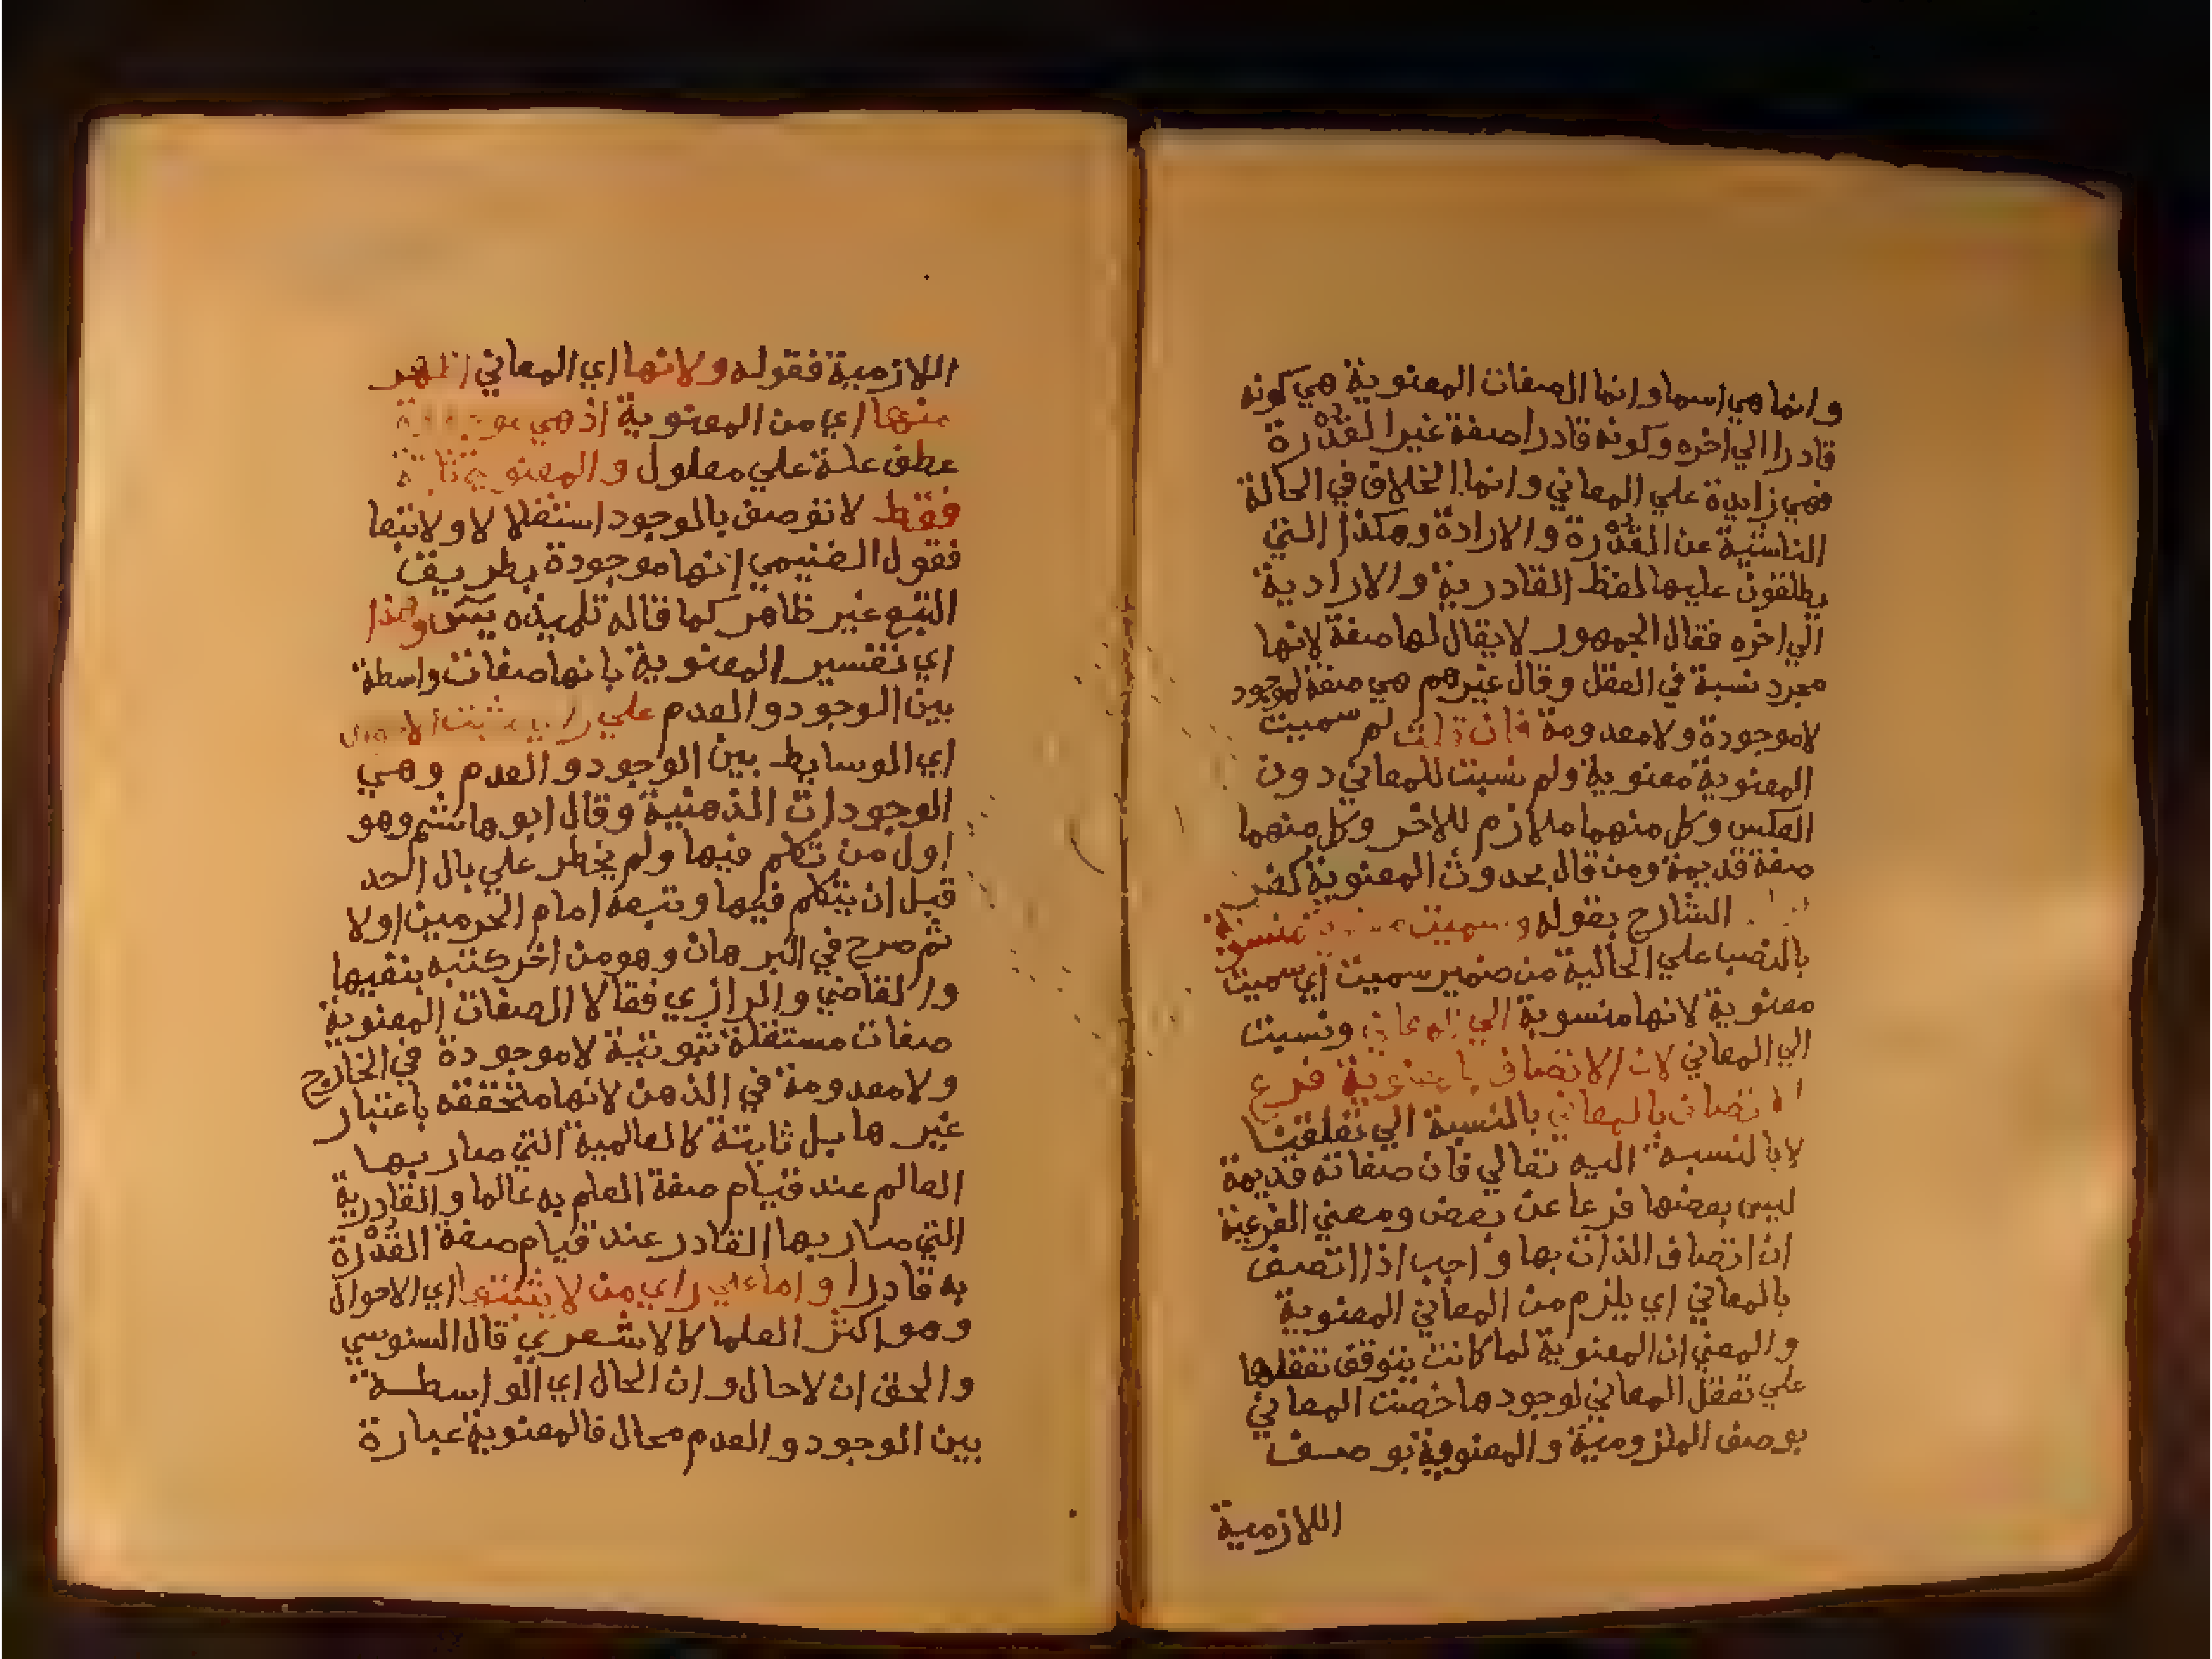 وانما هي اسما وانما الصفات المعنوية هي كونه
قادرا الي اخره وكونه قادرا صفة غير القدرة
فهي زايدة علي المعاني وانما الخلاف في الحالة
الناشية عن القدرة والارادة وهكذا التي
يطلقون عليها لفظ القادرية والارادية
الي اخره فقال الجمهور لا يقال لها صفة لانها
مجرد نسبة في العقل وقال غيرهم هي صفة لموجود
لا موجودة ولا معدومة فان قلت لم سميت
المعنوية معنوية ولم نسبت للمعاني دون
العكس وكل منهما ملازم للاخر وكل منهما
صفة قديمة ومن قال بحدوث المعنوية كفر
الشارح بقوله وسميت منسوبة
بالنصب علي الحالية من ضمير سميت اي سميت
معنوية لانها منسوبة الي المعاني ونسبت
الي المعاني لان الاتصاف بالمعنوية فرع
الاتصاف بالمعاني بالنسبة الي تعلقنا
لا بالنسبة اليه تعالي فان صفاته قديمة
ليس بعضها فرعا عن بعض ومعني الفرعية
ان اتصاف الذات بها واجب اذا اتصف
بالمعاني اي يلزم من المعاني المعنوية
والمعني ان المعنوية لما كانت يتوقف تعقلها
علي تعقل المعاني لوجودها خصت المعاني
بوصف الملزومية والمعنوية بوصف
اللازمية
اللازمية فقوله ولانها اي المعاني اظهر
منها اي من المعنوية اذ هي
عطف علة علي معلول والمعنوية ثابتة
فقط لا توصف بالوجود استقلالا ولا تبعا
فقول الغنيمي انها موجودة بطريق
التبع غير ظاهر كما قاله تلميذه يس وهذا
اي تفسير المعنوية بانها صفات واسطة
بين الوجود والعدم علي راي مثبت الاحوال
اي الوسايط بين الوجود والعدم وهي
الوجودات الذهنية وقال ابو هاشم وهو
اول من تكلم فيها ولم يخطر علي بال احد
قبل ان يتكلم فيها وتبعه امام الحرمين اولا
ثم صرح في البرهان وهو من اخر كتبه بنفيها
والقاضي والرازي فقالا الصفات المعنوية
صفات مستقلة ثبوتية لا موجودة في الخارج
ولا معدومة في الذهن لانها متحققة باعتبار
غيرها بل ثابتة كالعالمية التي صار بها
العالم عند قيام صفة العلم به عالما والقادرية
التي صار بها القادر عند قيام صفة القدرة
به قادرا واما علي راي من لا يثبتها اي الاحوال
وهو اكثر العلما كالاشعري قال السنوسي
والحق ان لا حال وان الحال اي الواسطة
بين الوجود والعدم محال فالمعنوية عبارة